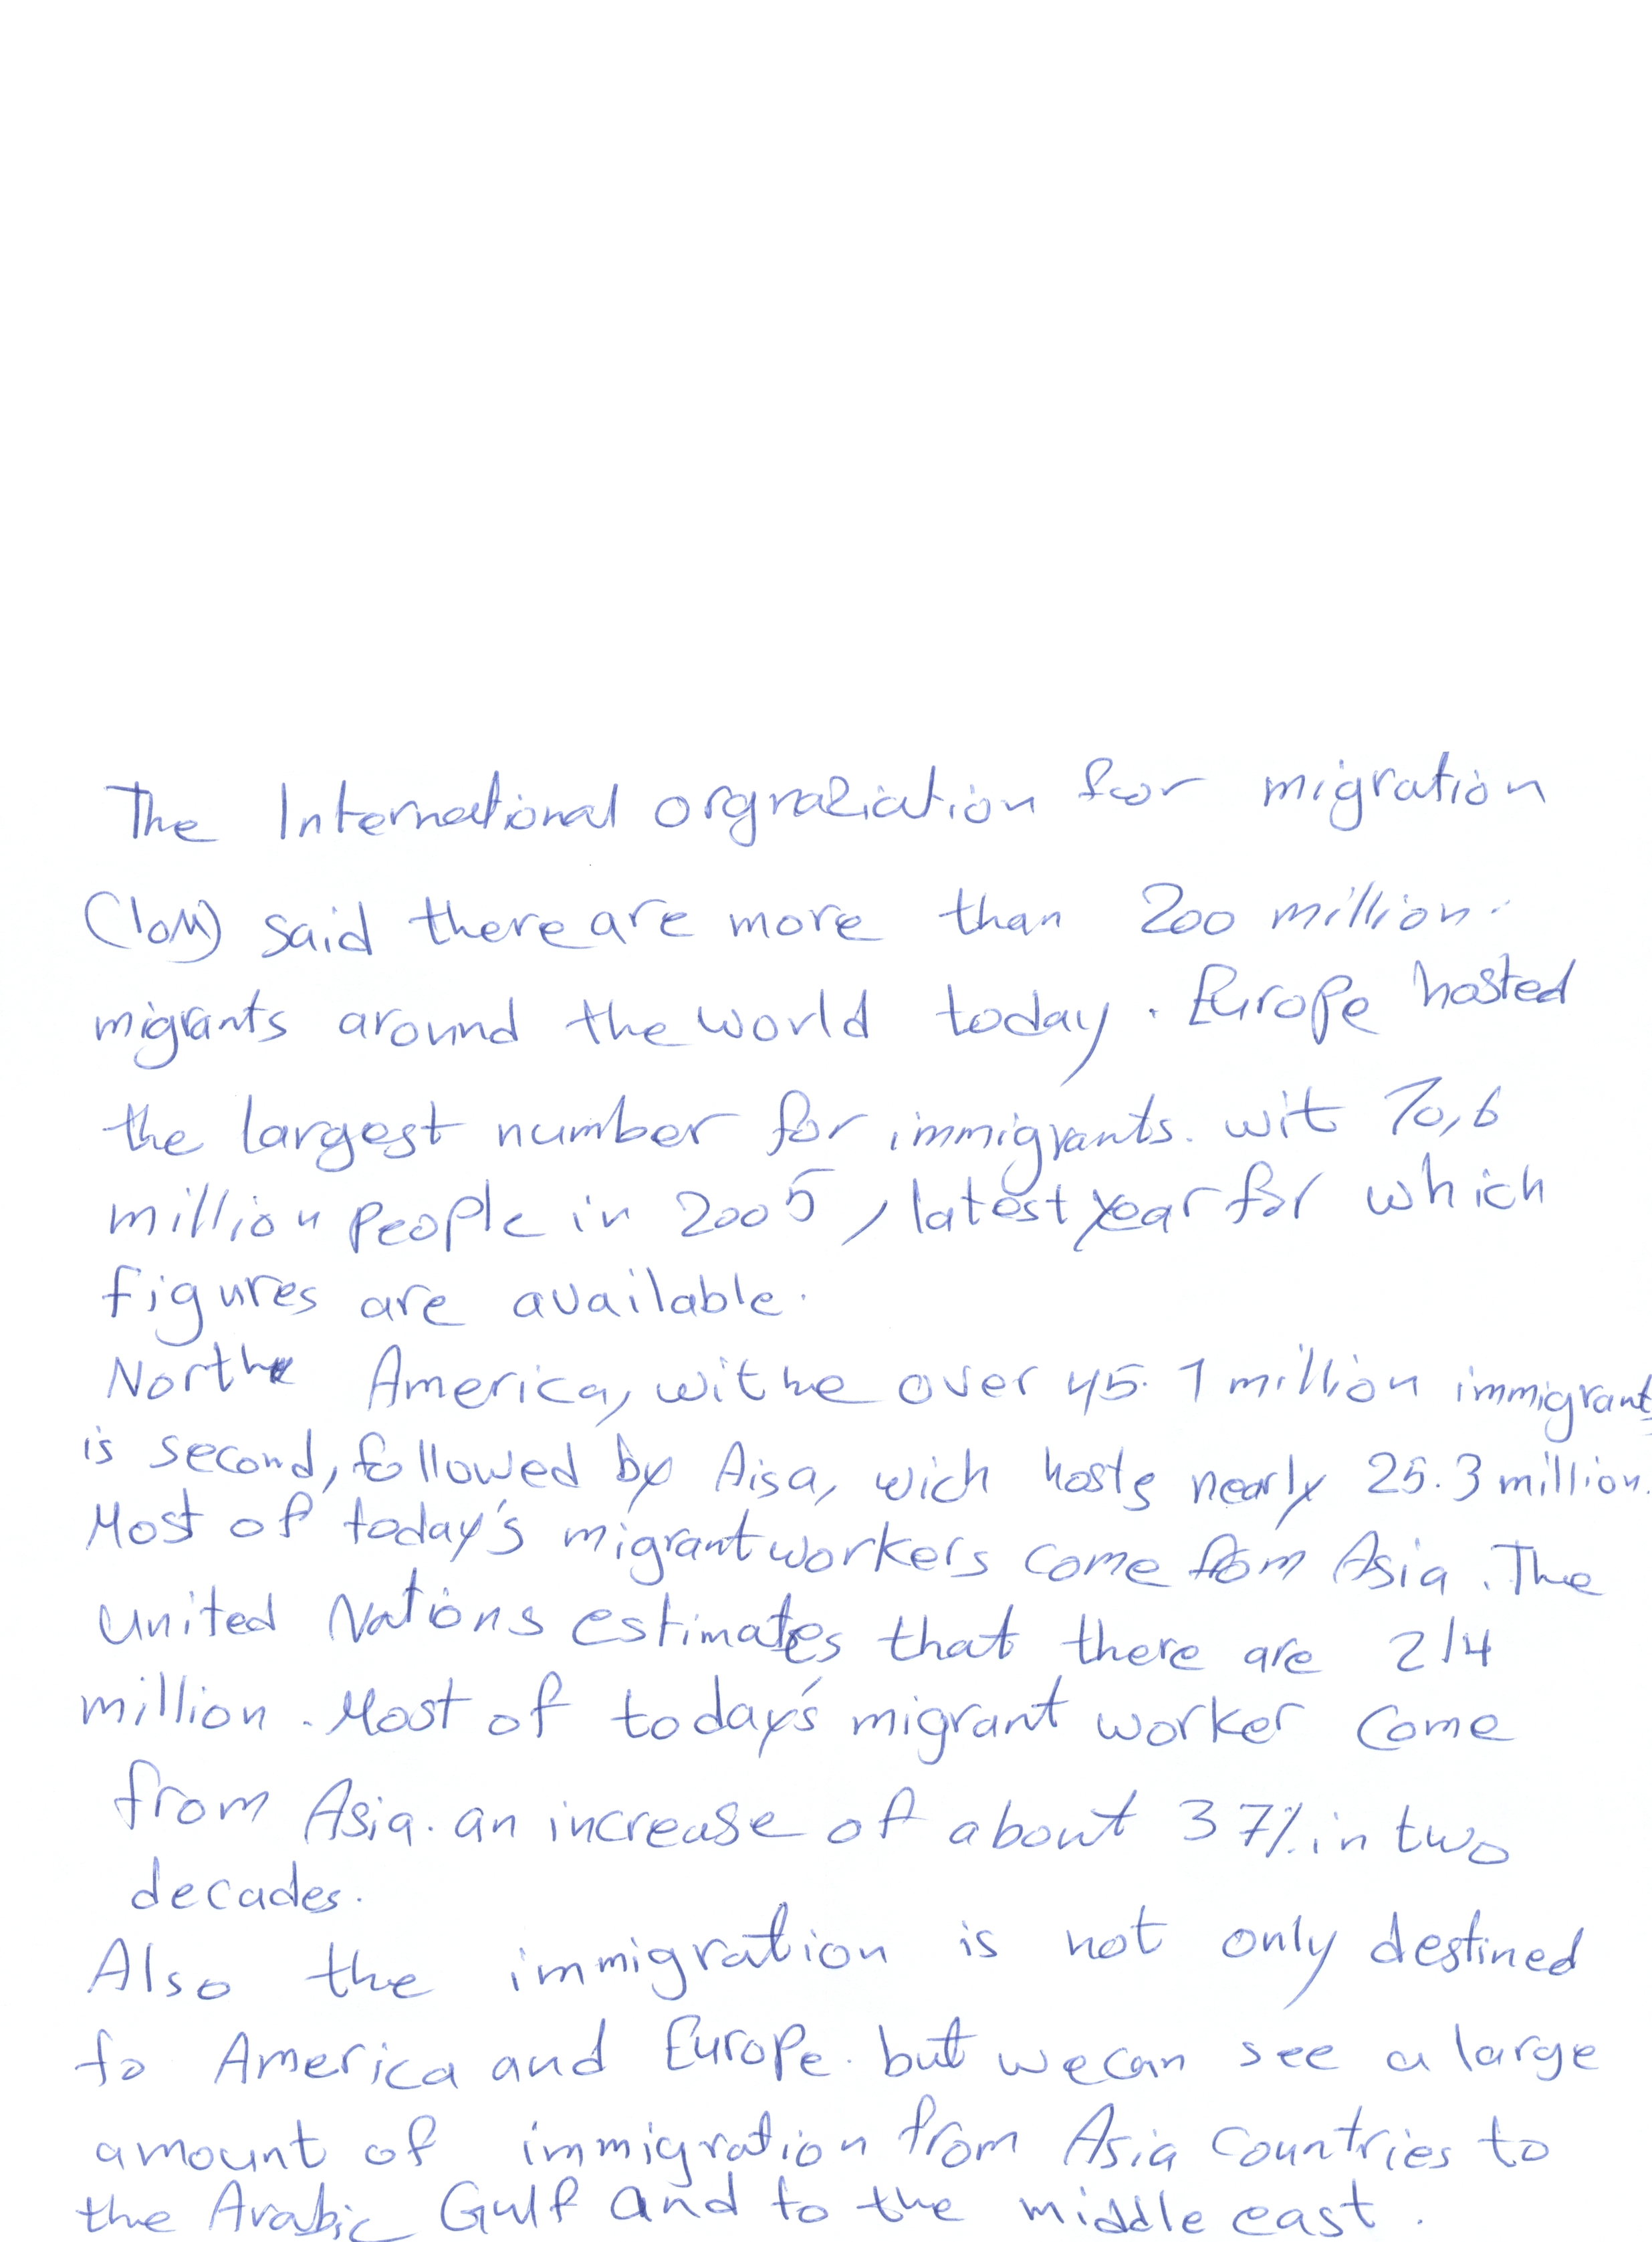 The International orgnaziation for migration
(IOM) said there are more than 200 million.
migrants around the world today. Europe hosted
the largest number for immigrants. wit 70,6
million people in 2005, latest year for which
figures are available.
Northe America, withe over 45.1 million immigrants
is second, followed by Aisa, wich hosts nearly 25.3 million.
Most of today's migrant workers come from Asia. The
United Nations estimates that there are 214
million. Most of today's migrant worker come
from Asia. an increase of about 37% in two
decades.
Also the immigration is not only destined
to America and Europe. but we can see a large
amount of immigration from Asia countries to
the Arabic Gulf and to the middle east.